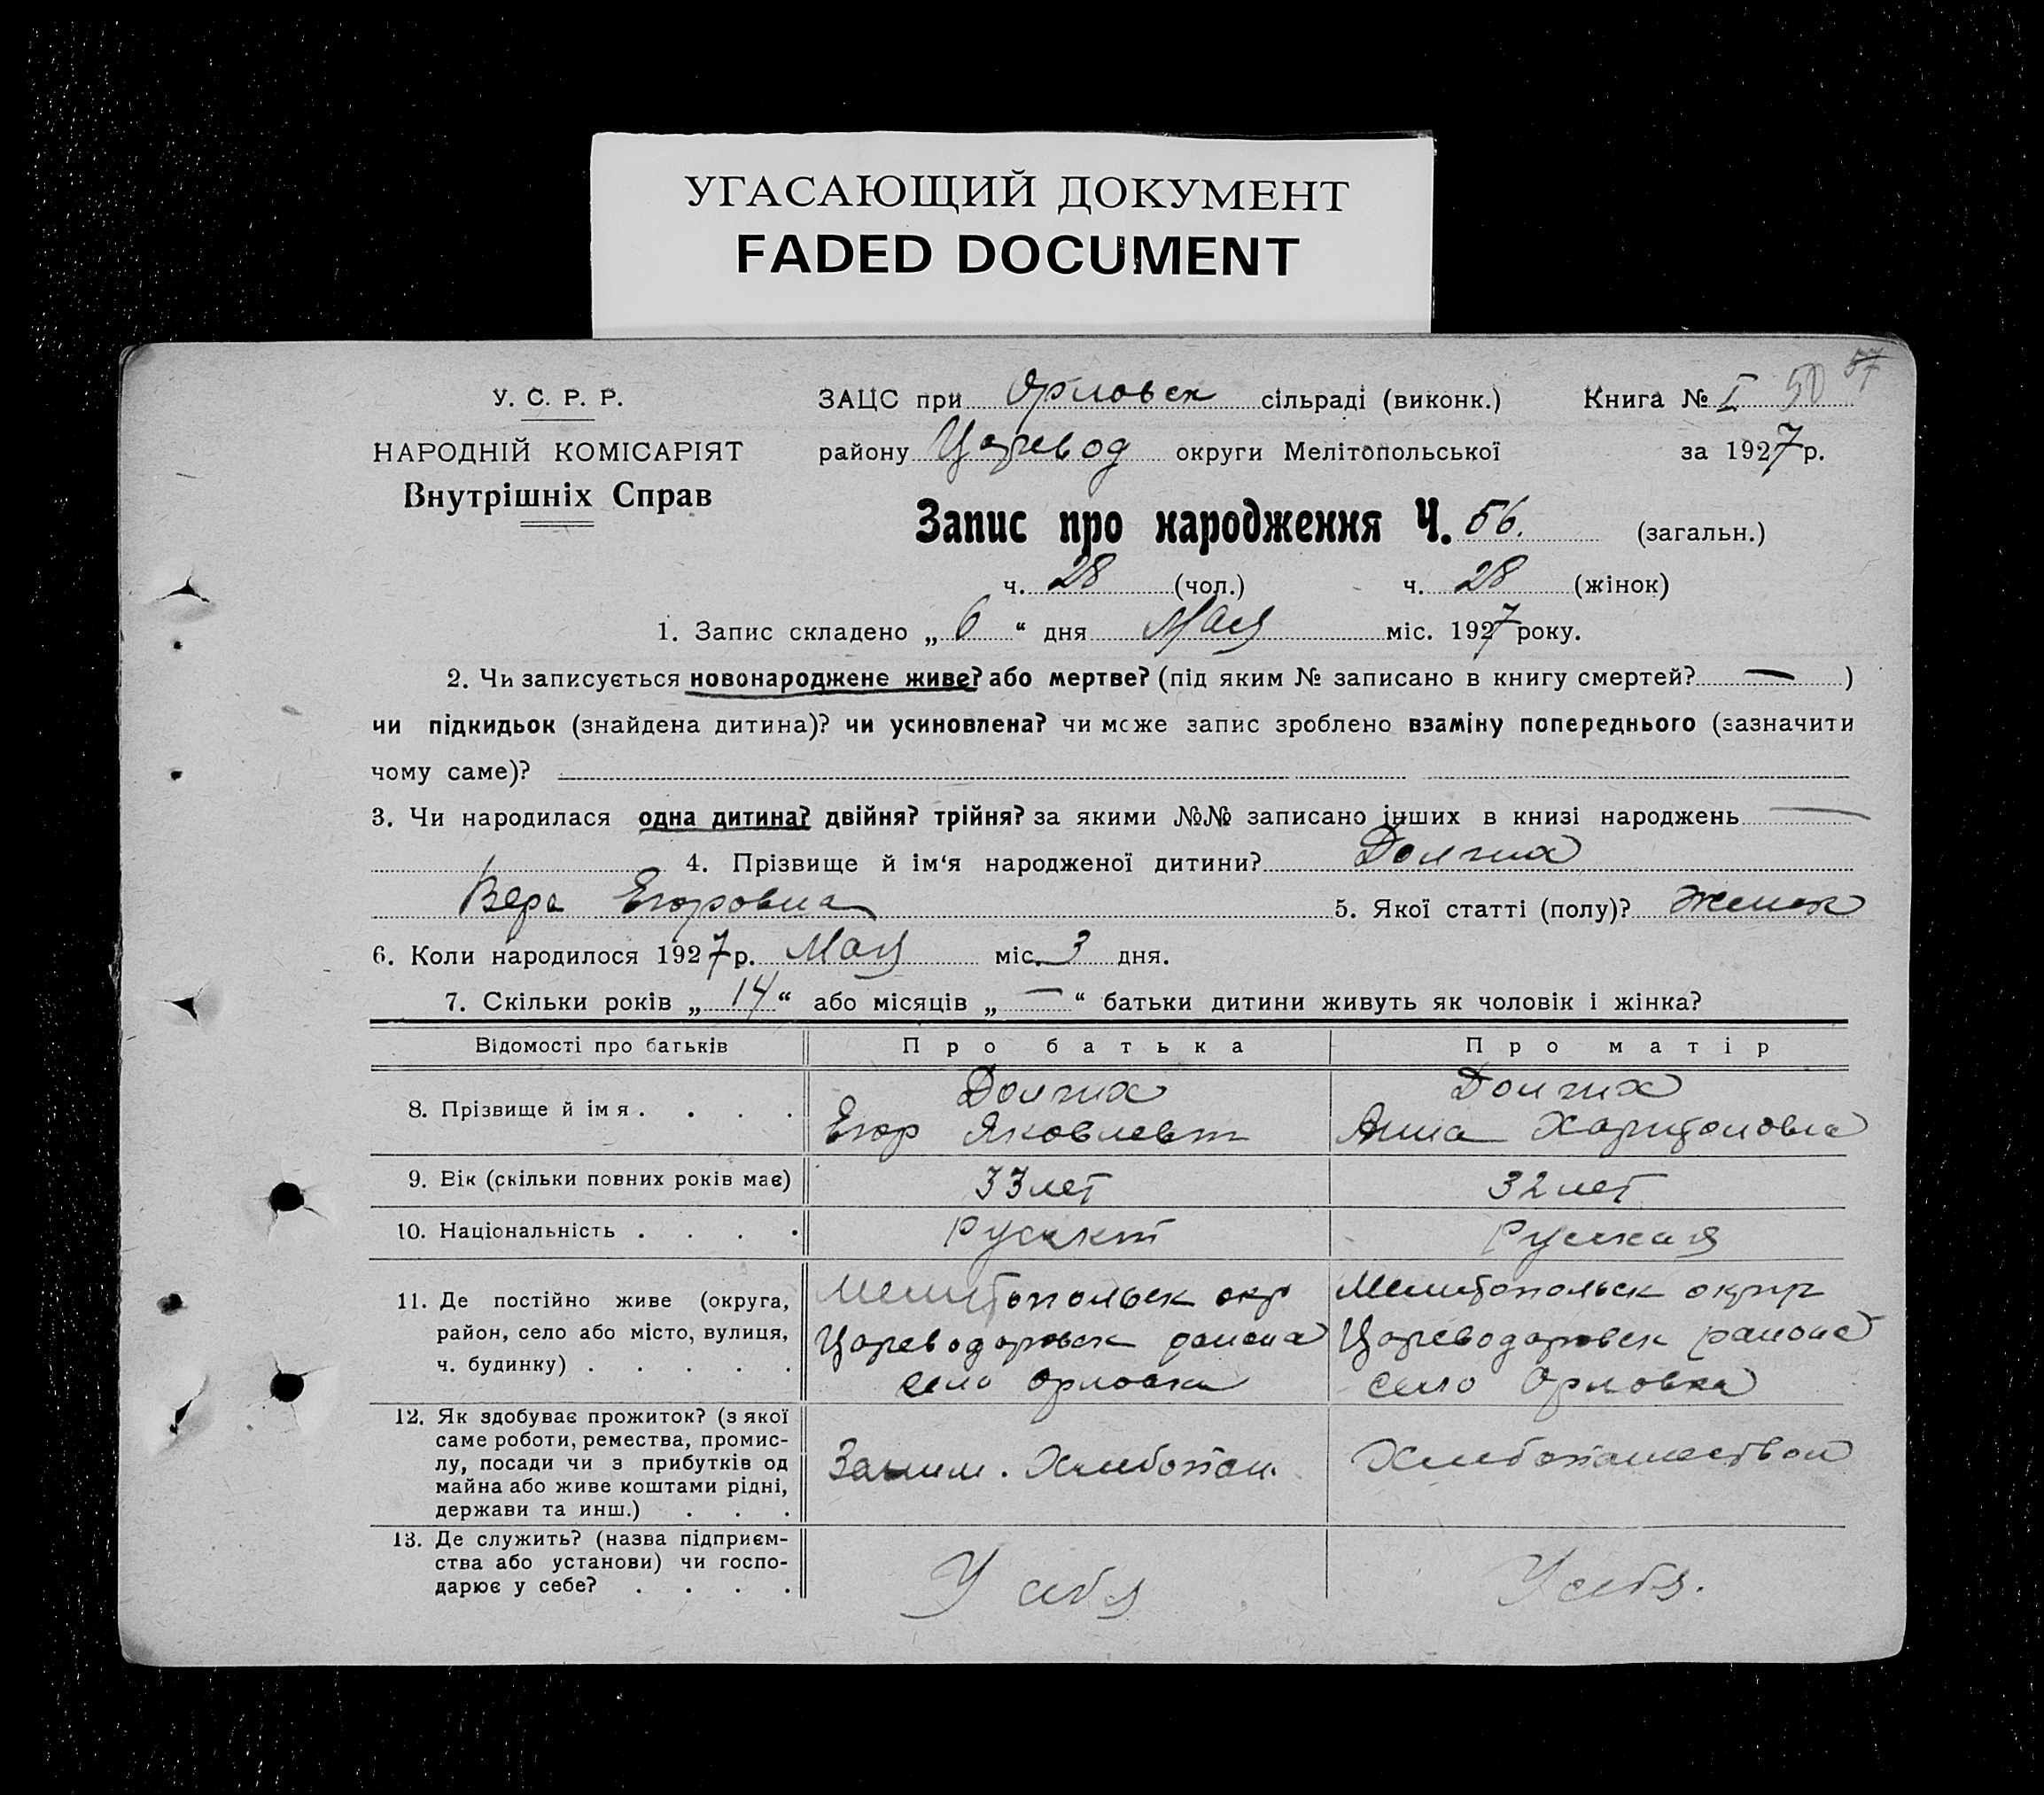 УГАСАЮЩИЙ ДОКУМЕНТ
FADED DOCUMENT
У. С. Р. Р.
НАРОДНІЙ КОМІСАРІЯТ
Внутрішніх Справ
ЗАЦС при Орловск сільраді (виконк.) Книга № I 50 57
району Царевод округи Мелітопольської за 1927 р.
Запис про народження Ч. 56. (загальн.)
ч. 28 (чол.) ч. 28 (жінок)
1. Запис складено „ 6 “ дня Мая міс. 1927 року.
2. Чи записується новонароджене живе? або мертве? (під яким № записано в книгу смертей? — )
чи підкидьок (знайдена дитина)? чи усиновлена? чи може запис зроблено взаміну попереднього (зазначити
чому саме)?
3. Чи народилася одна дитина? двійня? трійня? за якими №№ записано інших в книзі народжень —
4. Прізвище й ім‘я народженої дитини? Долгих
Вера Егоровна 5. Якої статті (полу)? Женск
6. Коли народилося 1927 р. Мая міс. 3 дня.
7. Скільки років „ 14 “ або місяців „ — “ батьки дитини живуть як чоловік і жінка?
Відомості про батьків Про батька Про матір
8. Прізвище й ім я . . . .
Долгих
Егор Яковлевт
Долгих
Анна Харитоновна
9. Вік (скільки повних років має) 33 лет 32 лет
10. Національність . . . . Русскт Русская
11. Де постійно живе (округа,
район, село або місто, вулиця,
ч. будинку) . . . . .
Мелитопольск окр
Цареводаровск района
село Орловка
Мелитопольск округ
Цареводаровск района
село Орловка
12. Як здобуває прожиток? (з якої
саме роботи, ремества, промис-
лу, посади чи з прибутків од
майна або живе коштами рідні,
держави та инш.) . . .
Заним. Хлебопаш.
Хлебопашеством
13. Де служить? (назва підприєм-
ства або установи) чи госпо-
дарює у себе? . . . .
У себя
У себя.